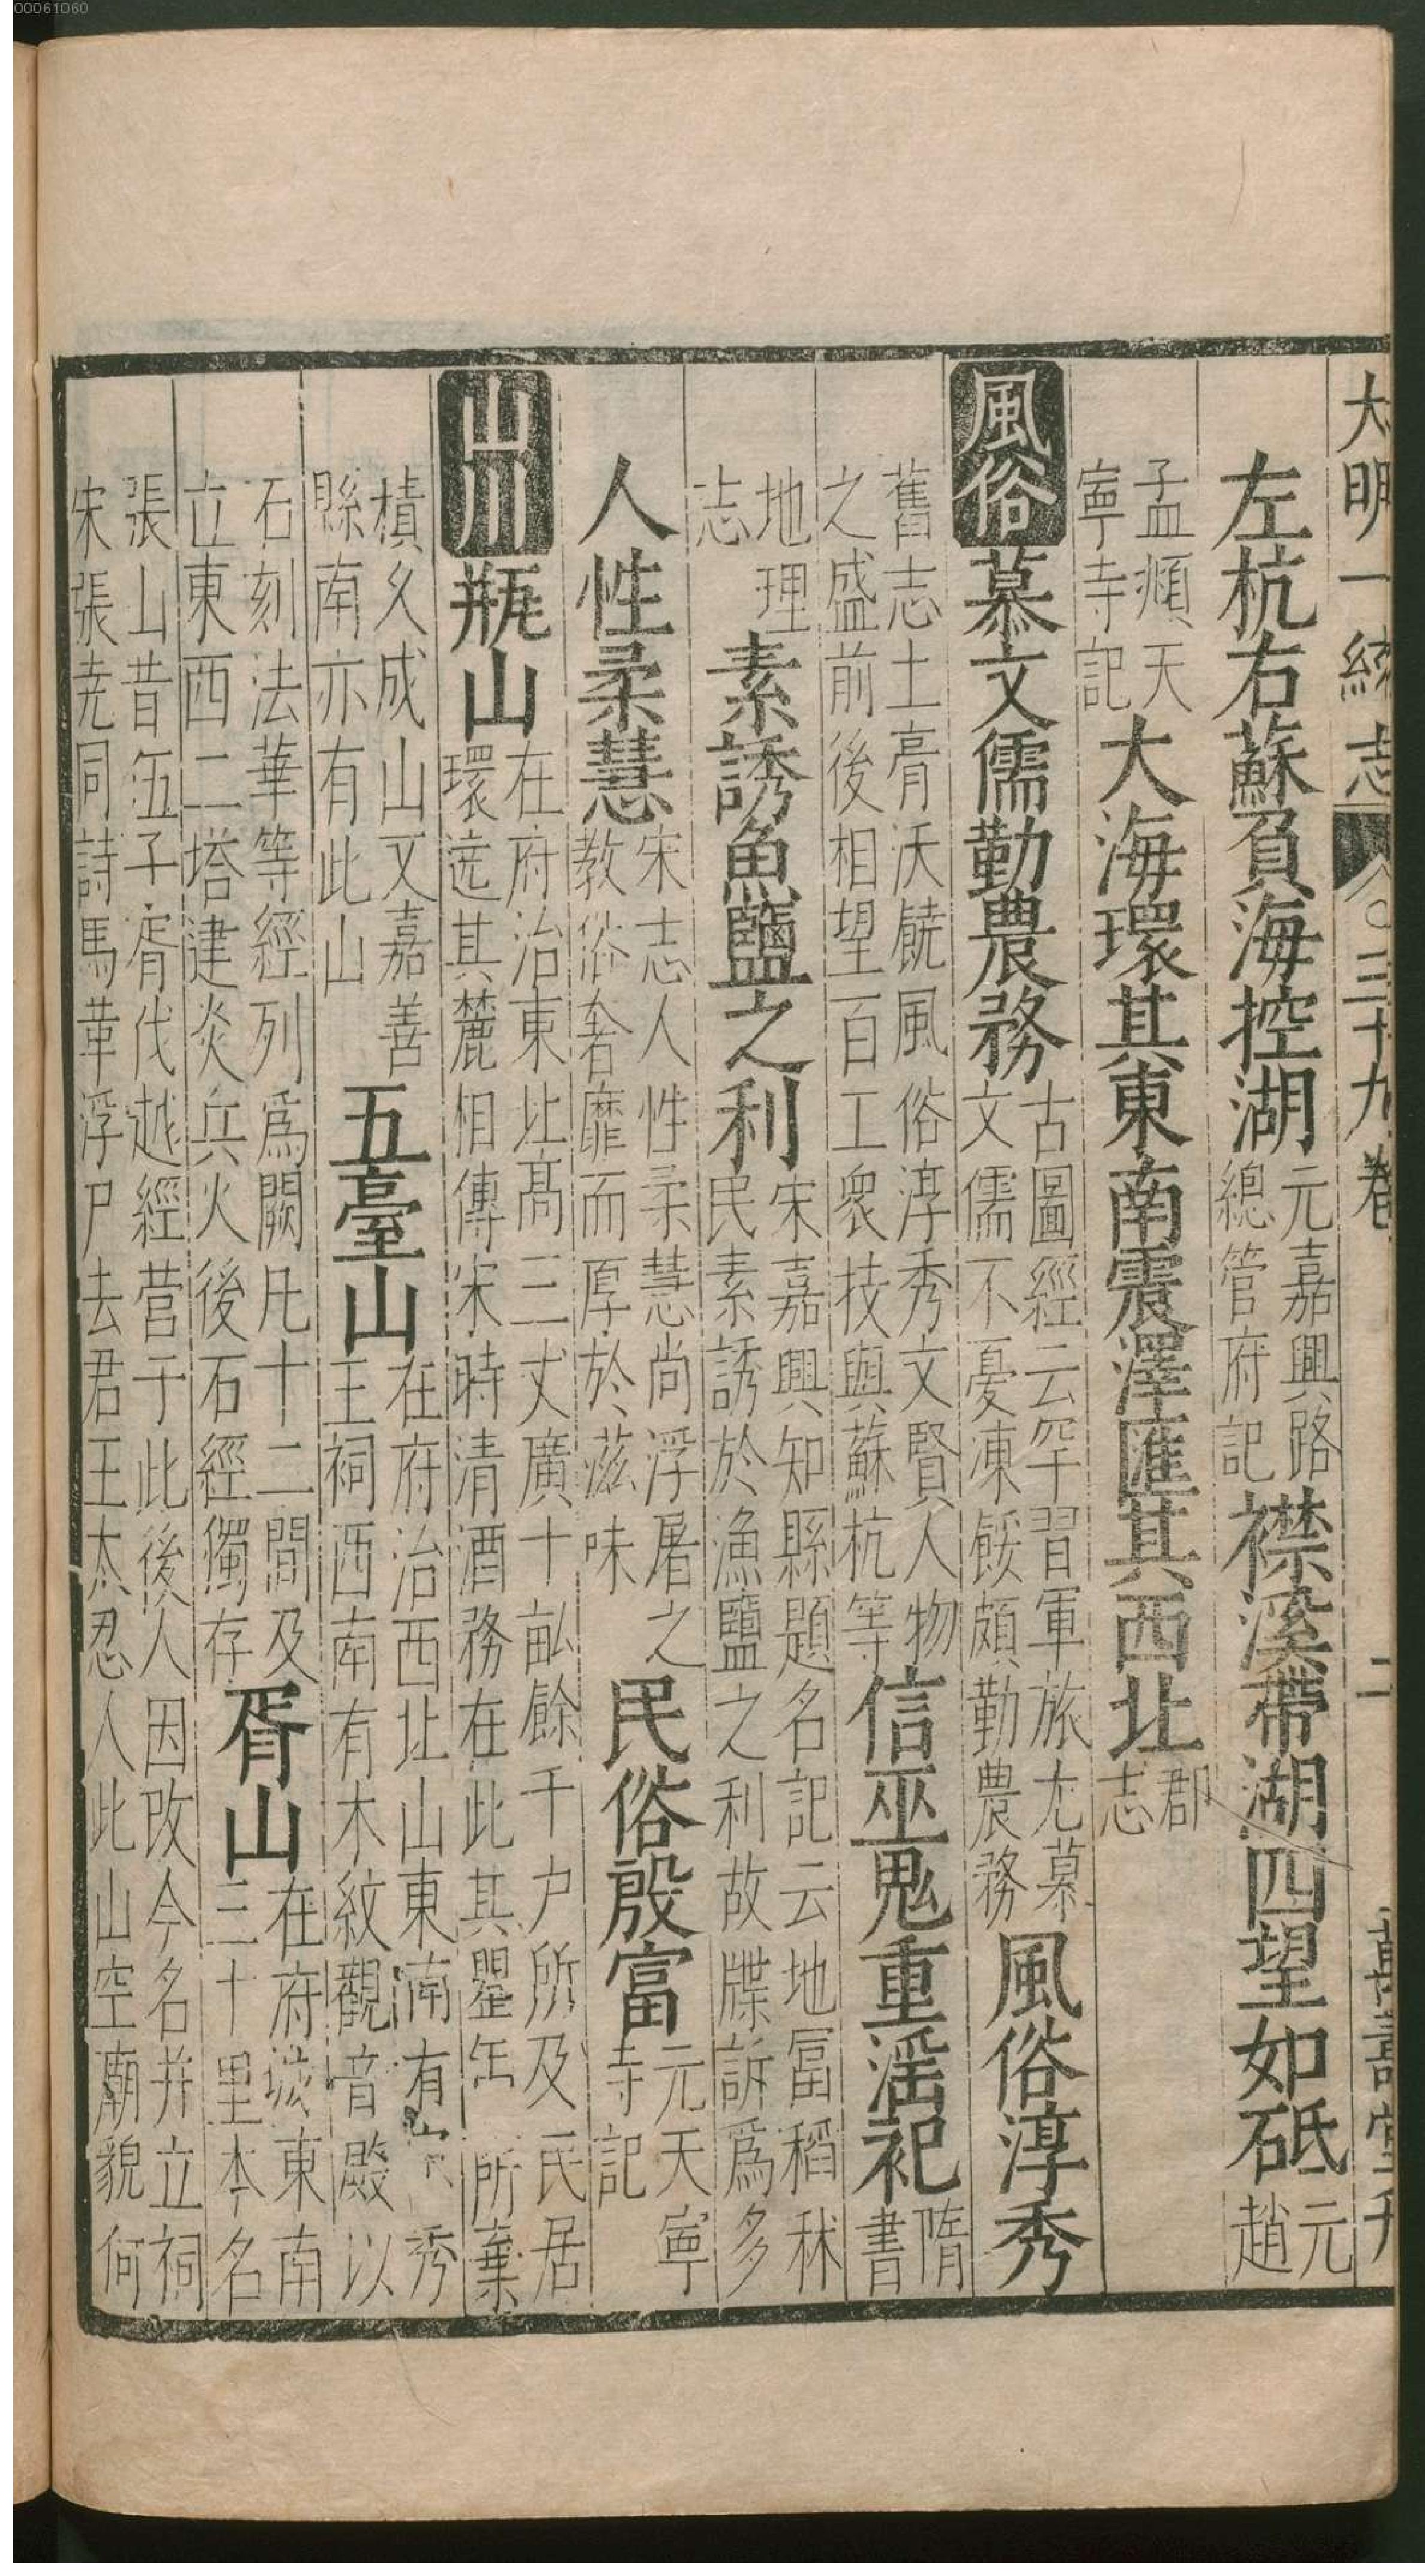 00061060
大明一統志 三十九卷 二 萬壽堂刊
左杭右蘇負海控湖元嘉興路總管府記襟溪帶湖四望如砥元趙
孟頫天寧寺記大海環其東南震澤匯其西北郡志
風俗慕文儒勤農務古圖經云罕習軍旅尤慕文儒不憂凍餒頗勤農務風俗淳秀
舊志土膏沃饒風俗淳秀文賢人物之盛前後相望百工衆技與蘇杭等信巫鬼重滛祀隋書
地理志素誘魚鹽之利宋嘉興知縣題名記云地冨稻秫民素誘於漁鹽之利故牒訴爲多
人性柔慧宋志人性柔慧尚浮屠之教俗奢靡而厚於滋味民俗殷富元天寧寺記
山川瓶山在府治東北髙三丈廣十畝餘千户所及民居環遶其麓相傳宋時清酒務在此其甖缶所棄
積久成山又嘉善縣南亦有此山五臺山在府治西北山東南有宋秀王祠西南有木紋觀音殿以
石刻法華等經列爲闕凡十二間及立東西二塔建炎兵火後石經獨存胥山在府城東南三十里本名
張山昔伍子胥伐越經营于此後人因改今名并立祠宋張尭同詩馬革浮尸去君王太忍人此山空廟貌何